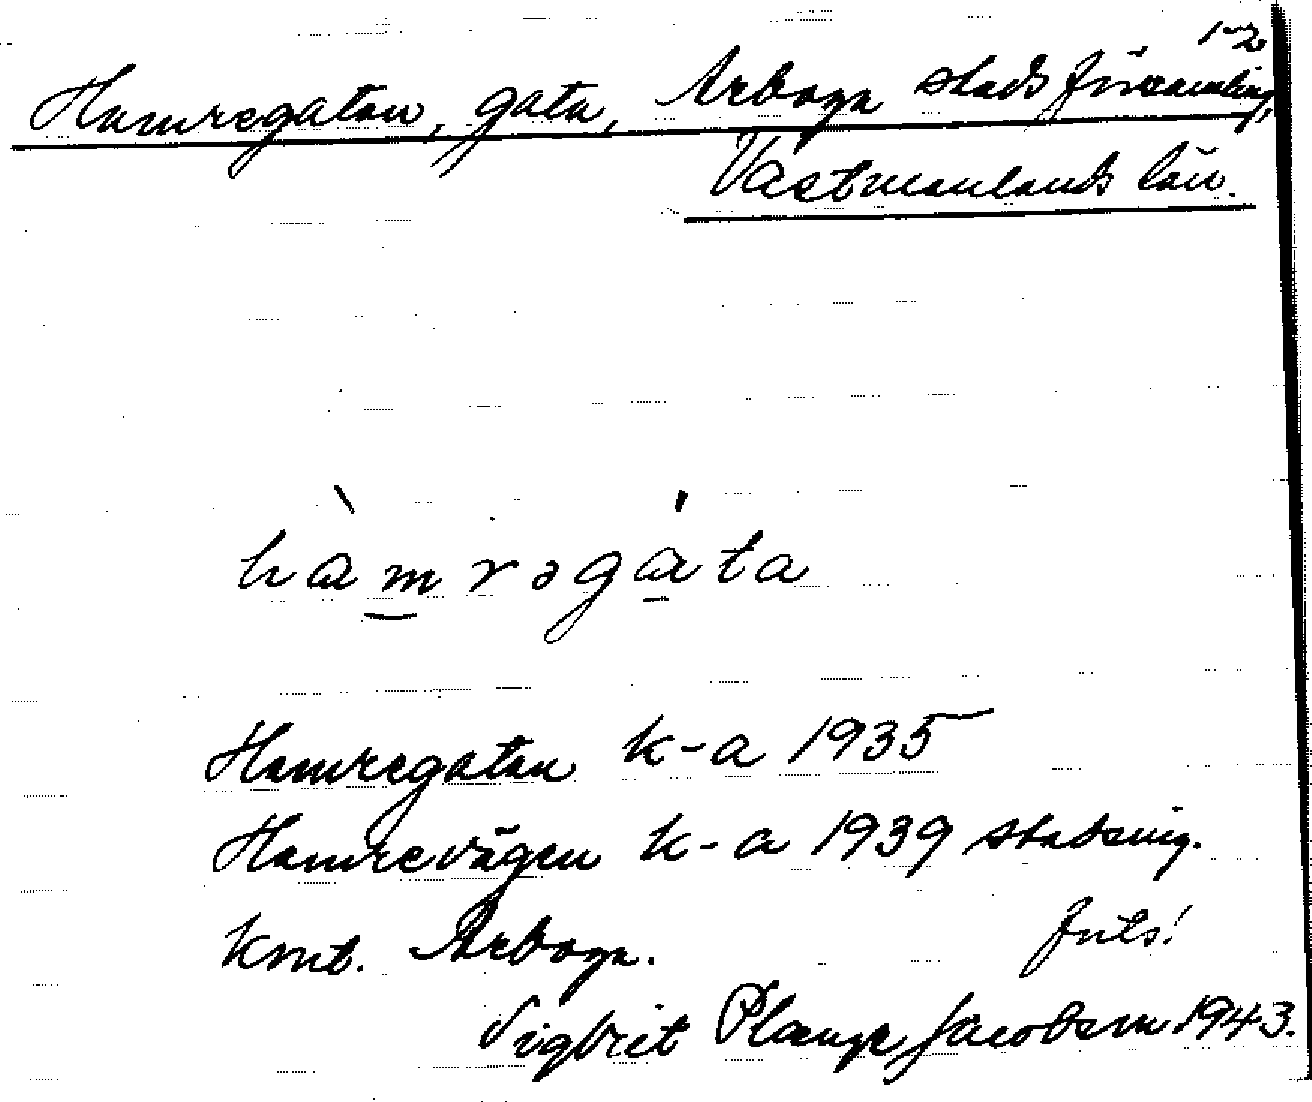 1-2
Hamregatan, gata, Arboga stads församling,
Västmanlands län.
hàmrəgáta
Hamregatan k-a 1935
Hamrevägen k-a 1939 stadsing.
knt. Arboga. forts!
Sigbrit Plænge Jacobson 1943.